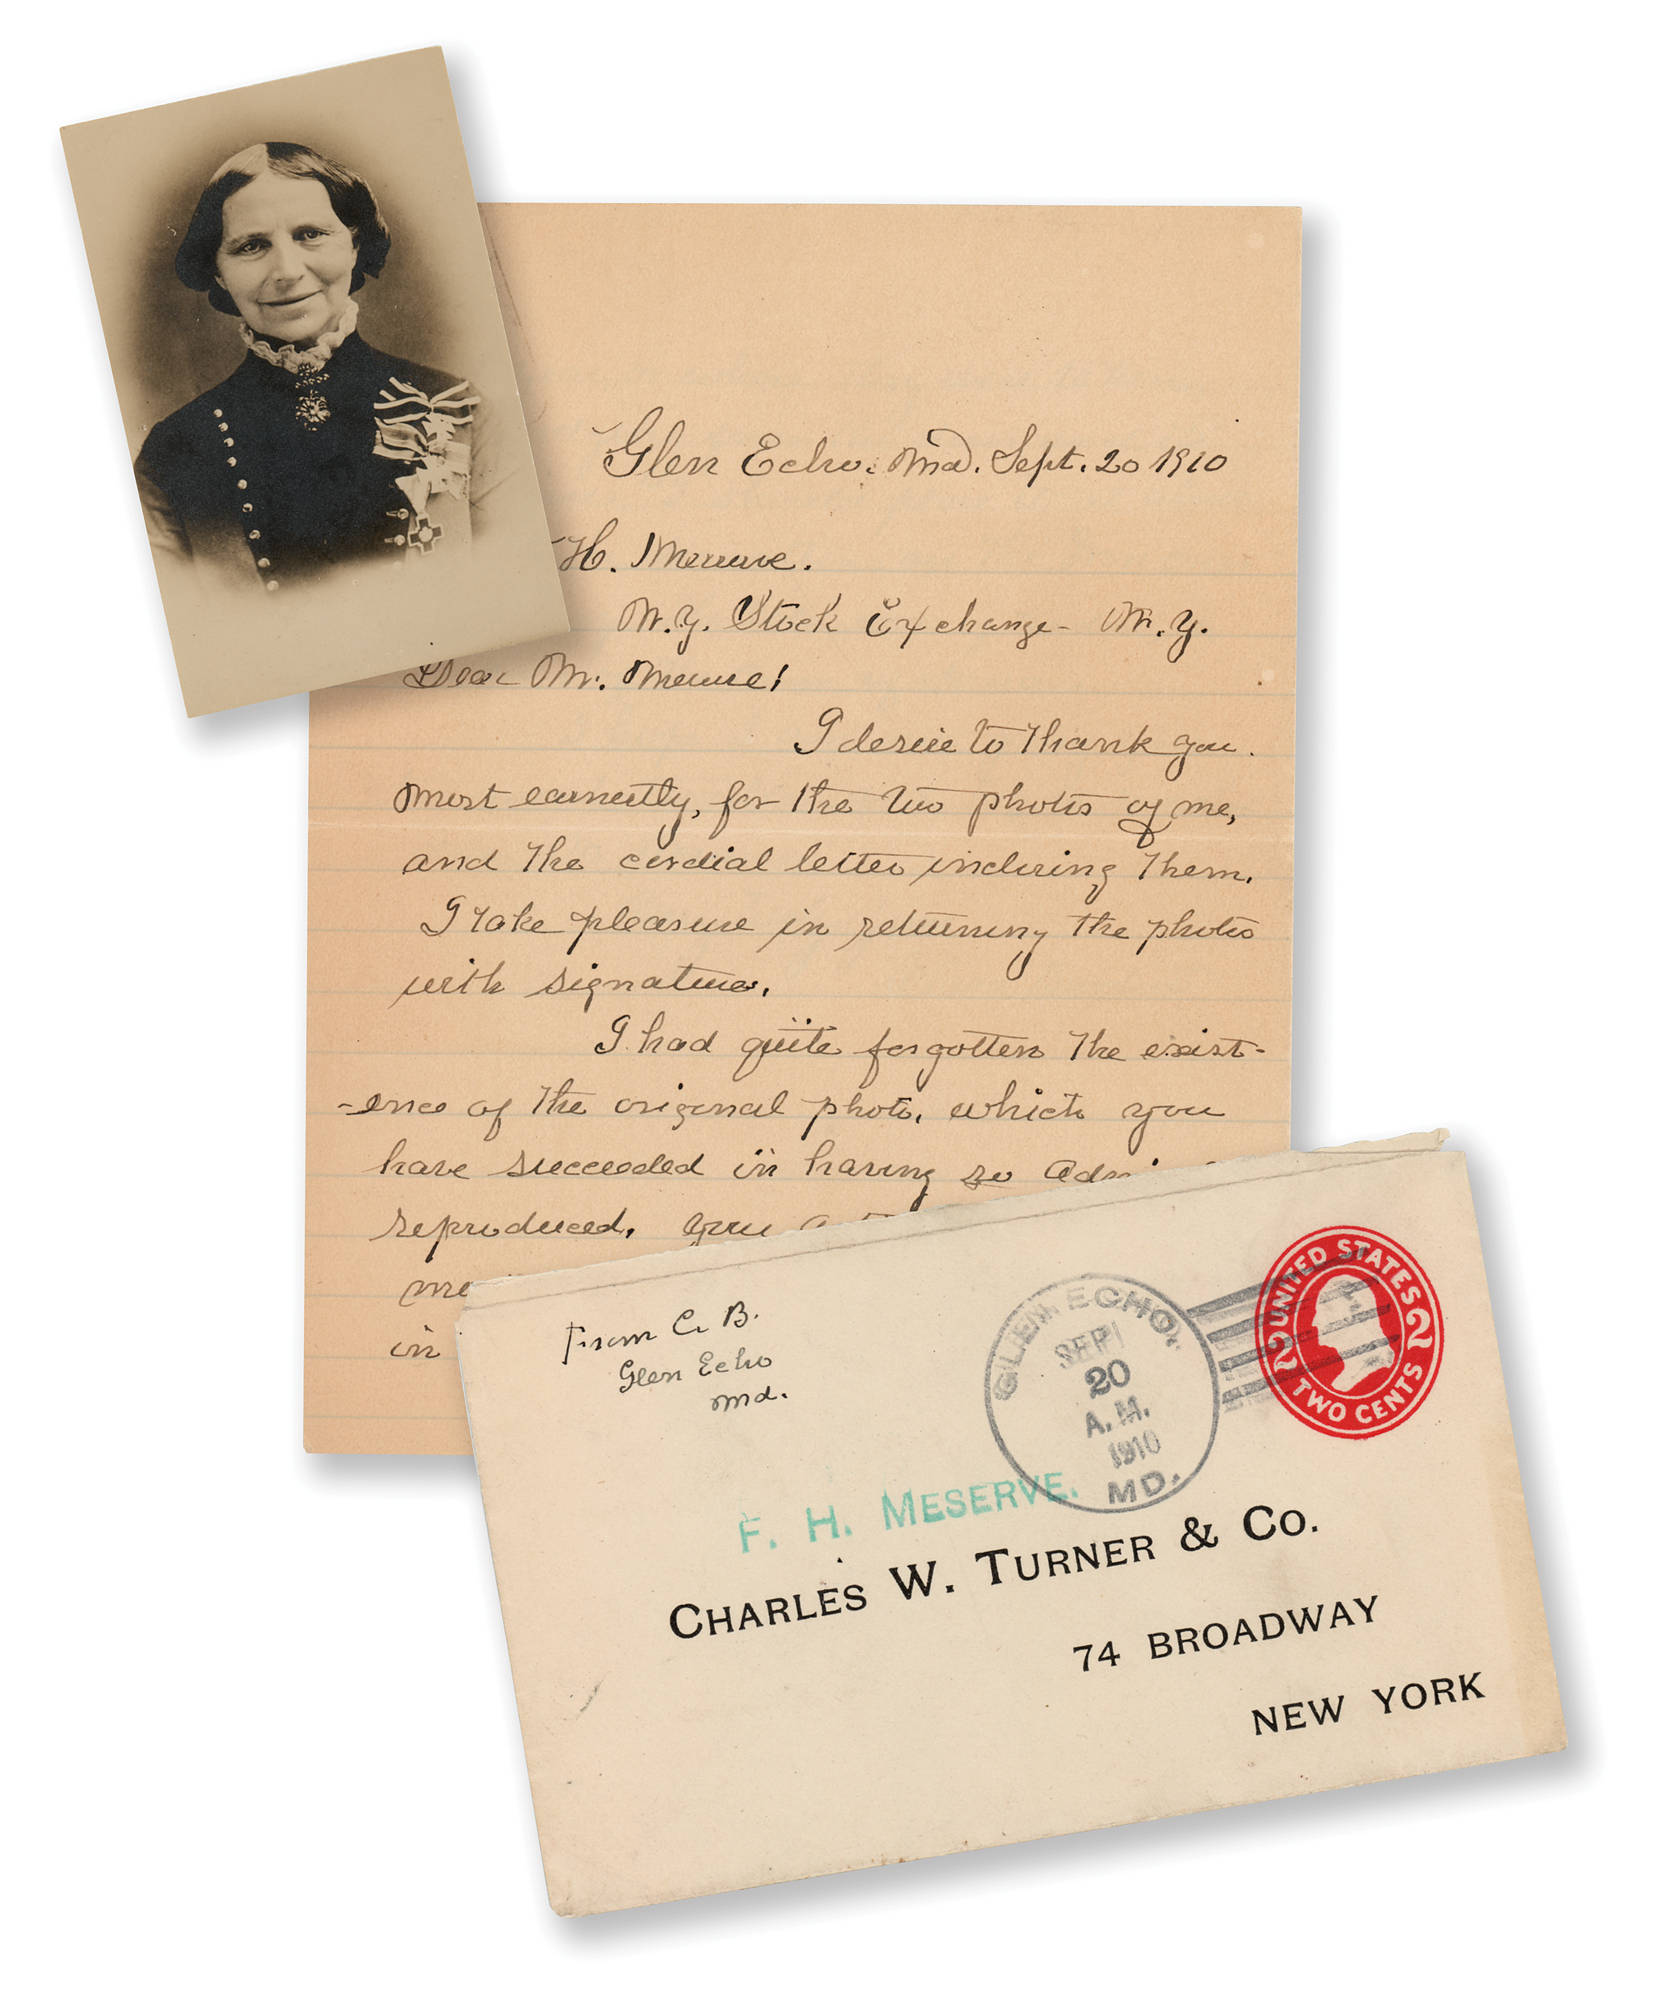 Glen Echo. Md. Sept. 20 1910
H. Meserve.
N.Y. Stock Exchange - N.Y.
Dear Mr. Meserve;
I desire to thank you
most earnestly, for the two photos of me,
and the cordial letter inclosing them.
I take pleasure in returning the photos
with signature.
I had quite forgotten the exist-
-ence of the original photo, which you
have succeeded in having so
reproduced. you
me
in
From C. B.
Glen Echo
Md.
GLEN ECHO.
SEP
20
A.M.
1910
MD.
UNITED STATES
2 2
TWO CENTS
F. H. MESERVE.
CHARLES W. TURNER & CO.
74 BROADWAY
NEW YORK